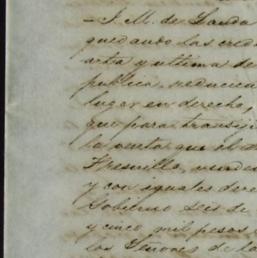 - J. M. de Landa
quedando las cred
arta y ultima de
publica, reducien
lugar en derecho,
que para transiji
la venta que
Fresnillo,
y con iguales dere
Gobierno seis de
y cinco mil pesos
los Señores de la